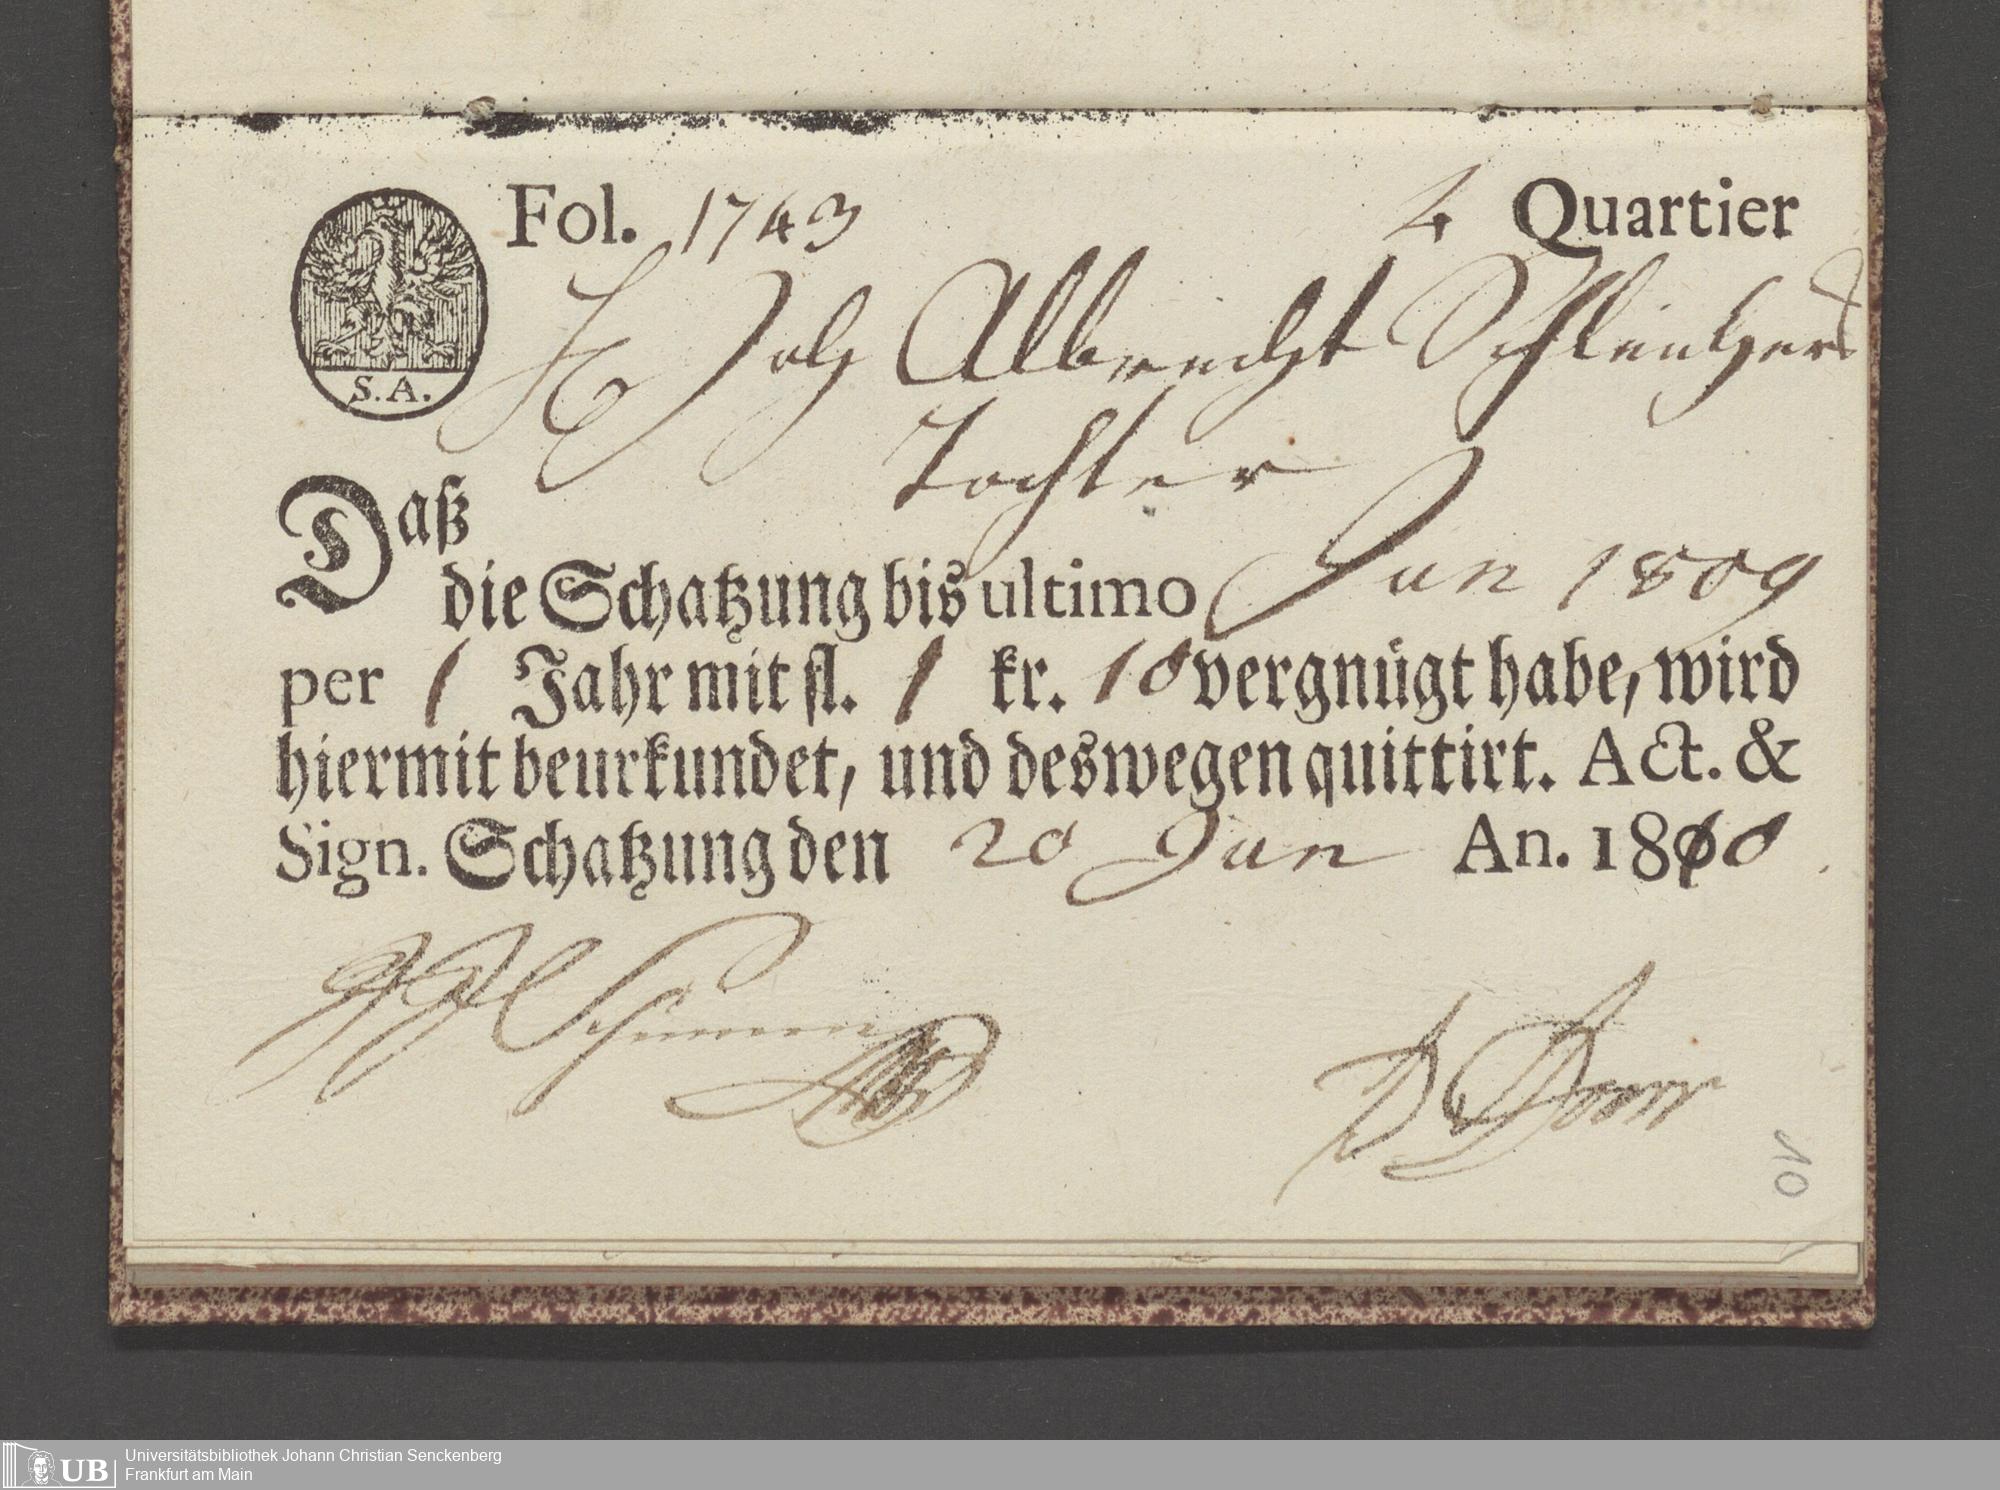 Fol. 1743 4 Quartier
S. A.
Joh Albrecht
Tochter
Daß
die Schatzung bis ultimo Jun 1809
per 1 Jahr mit fl. 1 kr. 10 vergnügt habe, wird
hiermit beurkundet, und deswegen quittirt. Act. &
Sign. Schatzung den 20 Jun An. 1810
10
UB Universitätsbibliothek Johann Christian Senckenberg
Frankfurt am Main